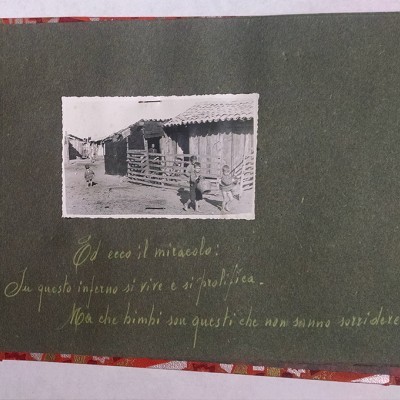 Ed ecco il miracolo:
In questo inferno si vive e si prolifica.
Ma che bimbi son questi che non sanno sorridere